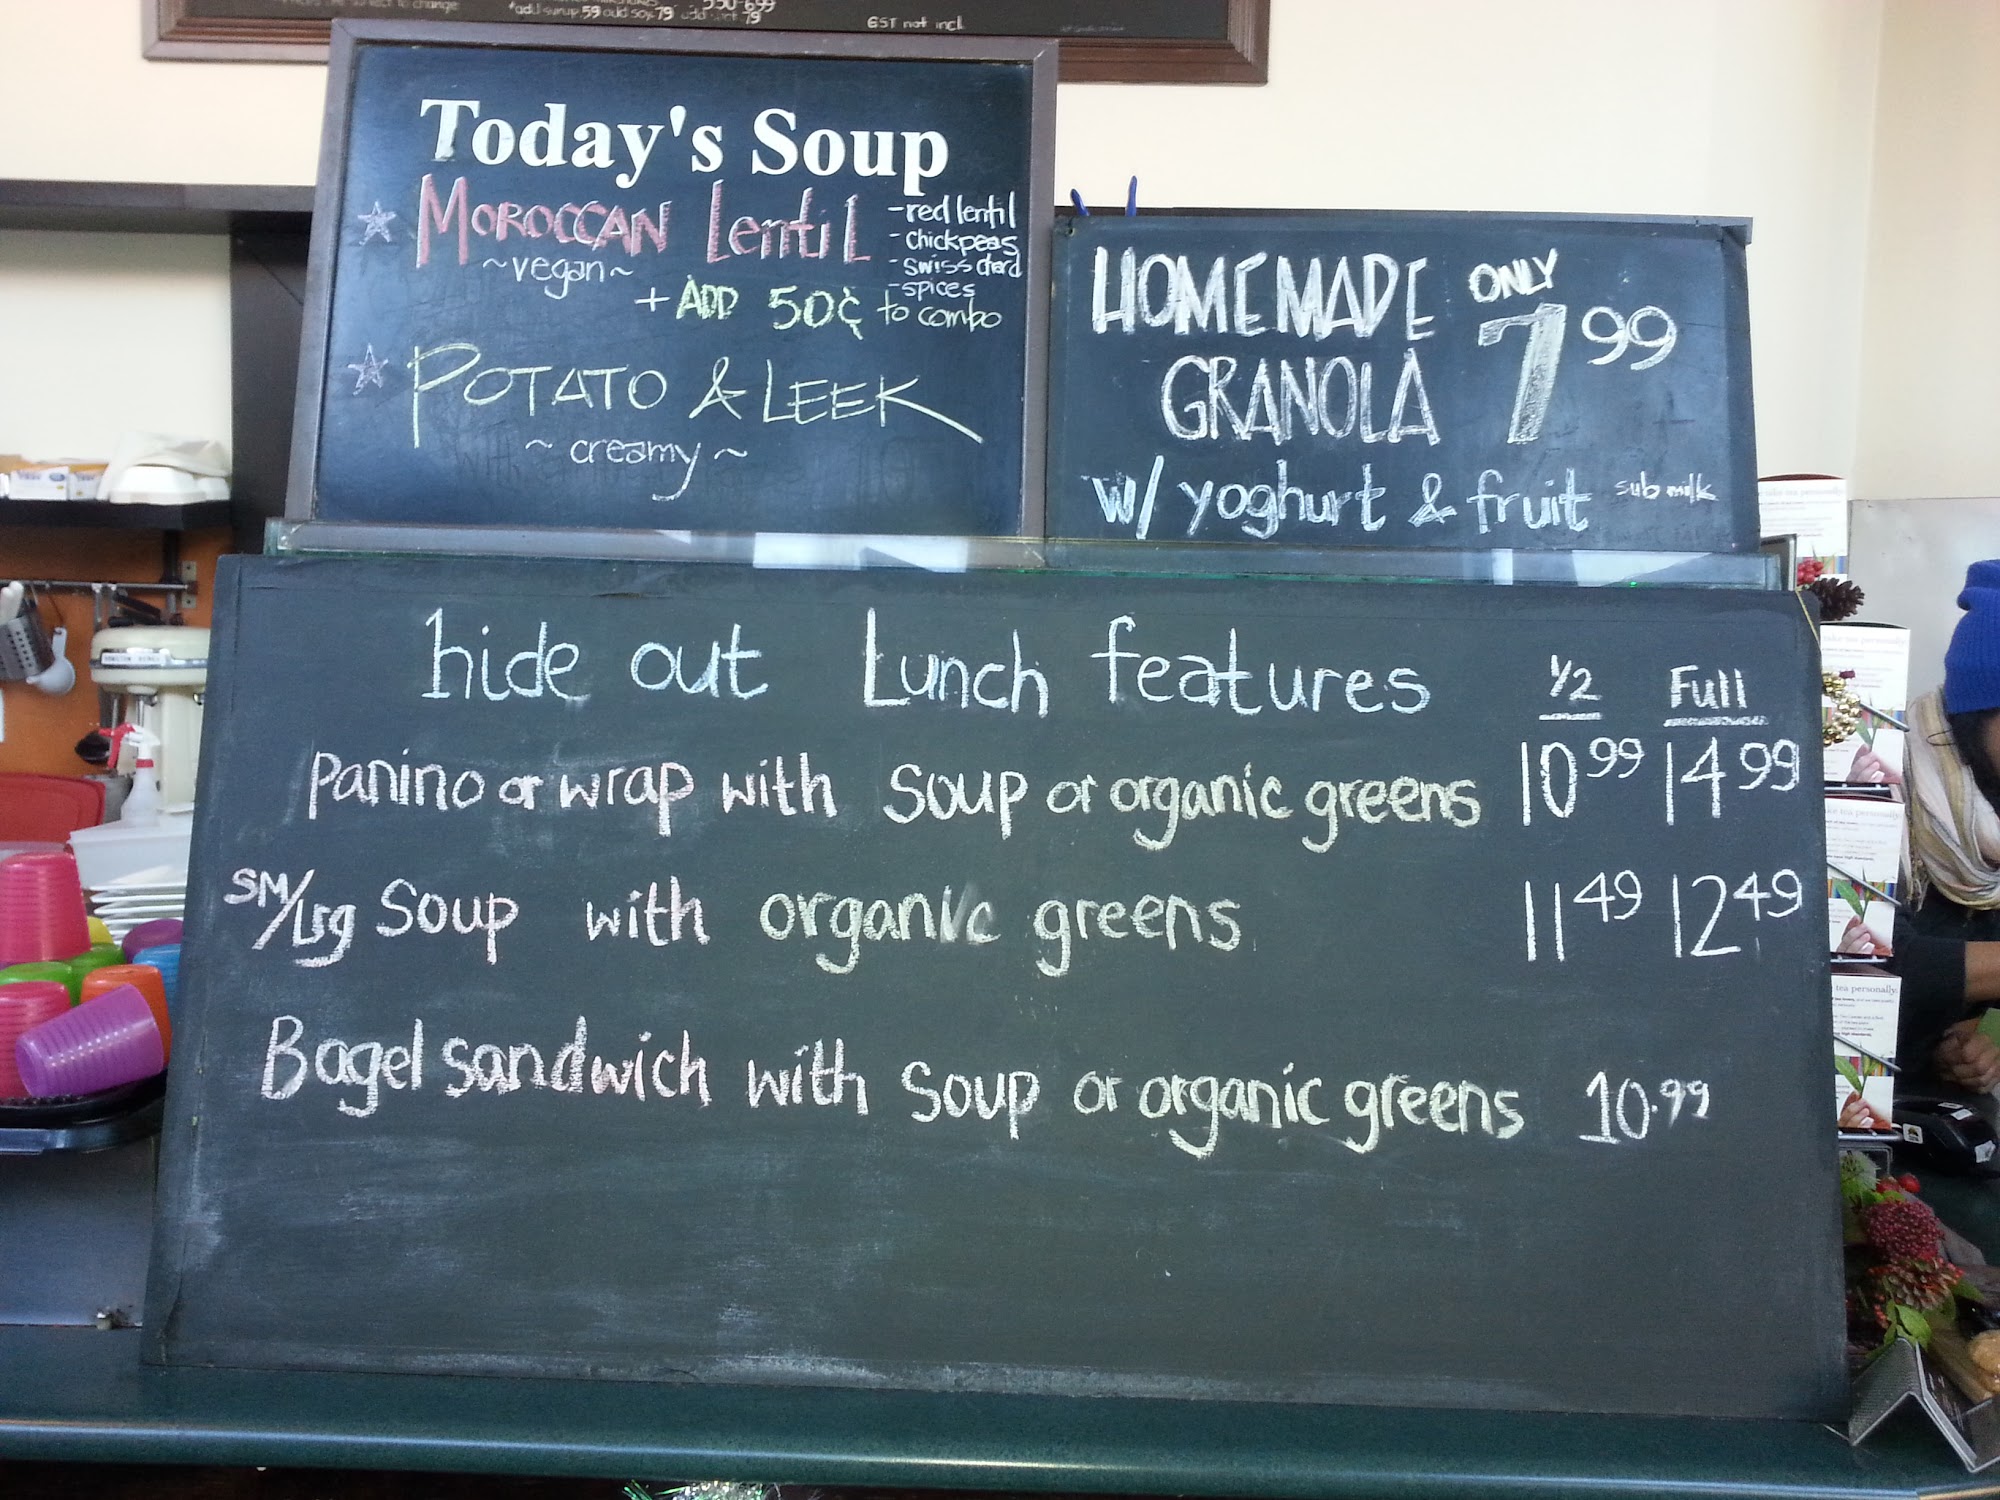 *add syrup 59 add soy 79
GST not incl.
Today's Soup
MOROCCAN LentiL
~vegan~
-red lentil
-chickpeas
-swiss chard
-spices
+ ADD 50¢ to combo
POTATO & LEEK
~ creamy ~
HOMEMADE ONLY 7 99
GRANOLA
w/ yoghurt & fruit sub milk
hide out Lunch features 1/2 Full
panino or wrap with soup or organic greens 10 99 14 99
SM/Lrg Soup with organic greens 11 49 12 49
Bagel sandwich with soup or organic greens 10.99
tea personally.